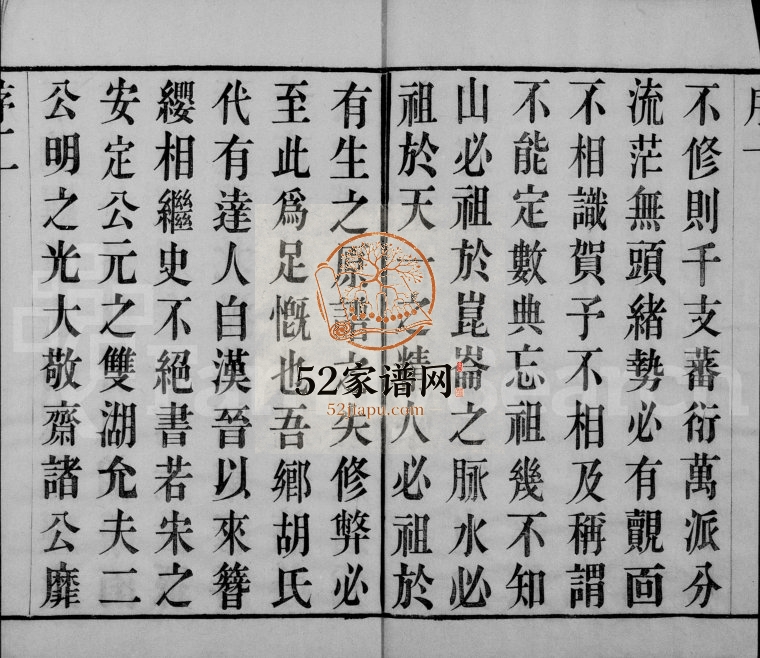 不修則千支蕃衍萬派分
流茫無頭緒勢必有覿面
不相識賀予不相及稱謂
不能定數典忘祖幾不知
山必祖於崑崙之脈水必
祖於天一之精人必祖於
有生之原譜之失修弊必
至此為足慨也吾鄉胡氏
代有達人自漢晉以來簪
纓相繼史不絕書若宋之
安定公元之雙湖允夫二
公明之光大敬齋諸公靡
52家谱网
52jiapu.com